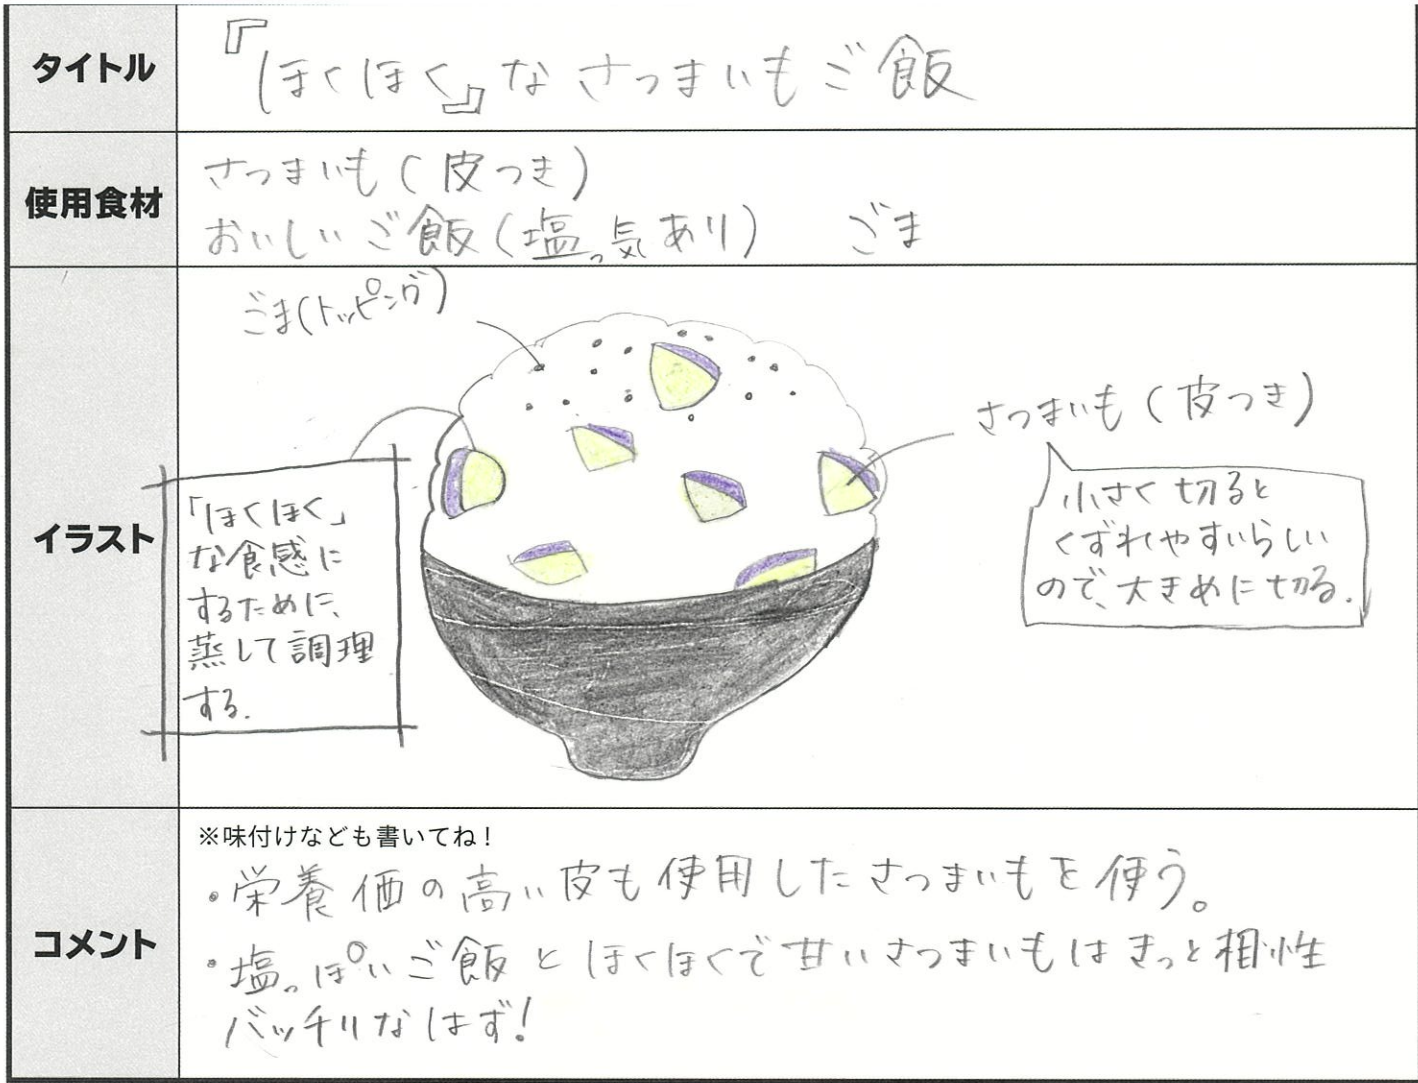 タイトル
『ほくほく』なさつまいもご飯
使用食材
さつまいも(皮つき)
おいしいご飯(塩っ気あり) ごま
イラスト
ごま(トッピング)
さつまいも(皮つき)
小さく切ると
くずれやすいらしい
ので、大きめに切る.
「ほくほく」
な食感に
するために、
蒸して調理
する.
コメント
※味付けなども書いてね!
・栄養価の高い皮も使用したさつまいもを使う。
・塩っぽいご飯とほくほくで甘いさつまいもはきっと相性
バッチリなはず!